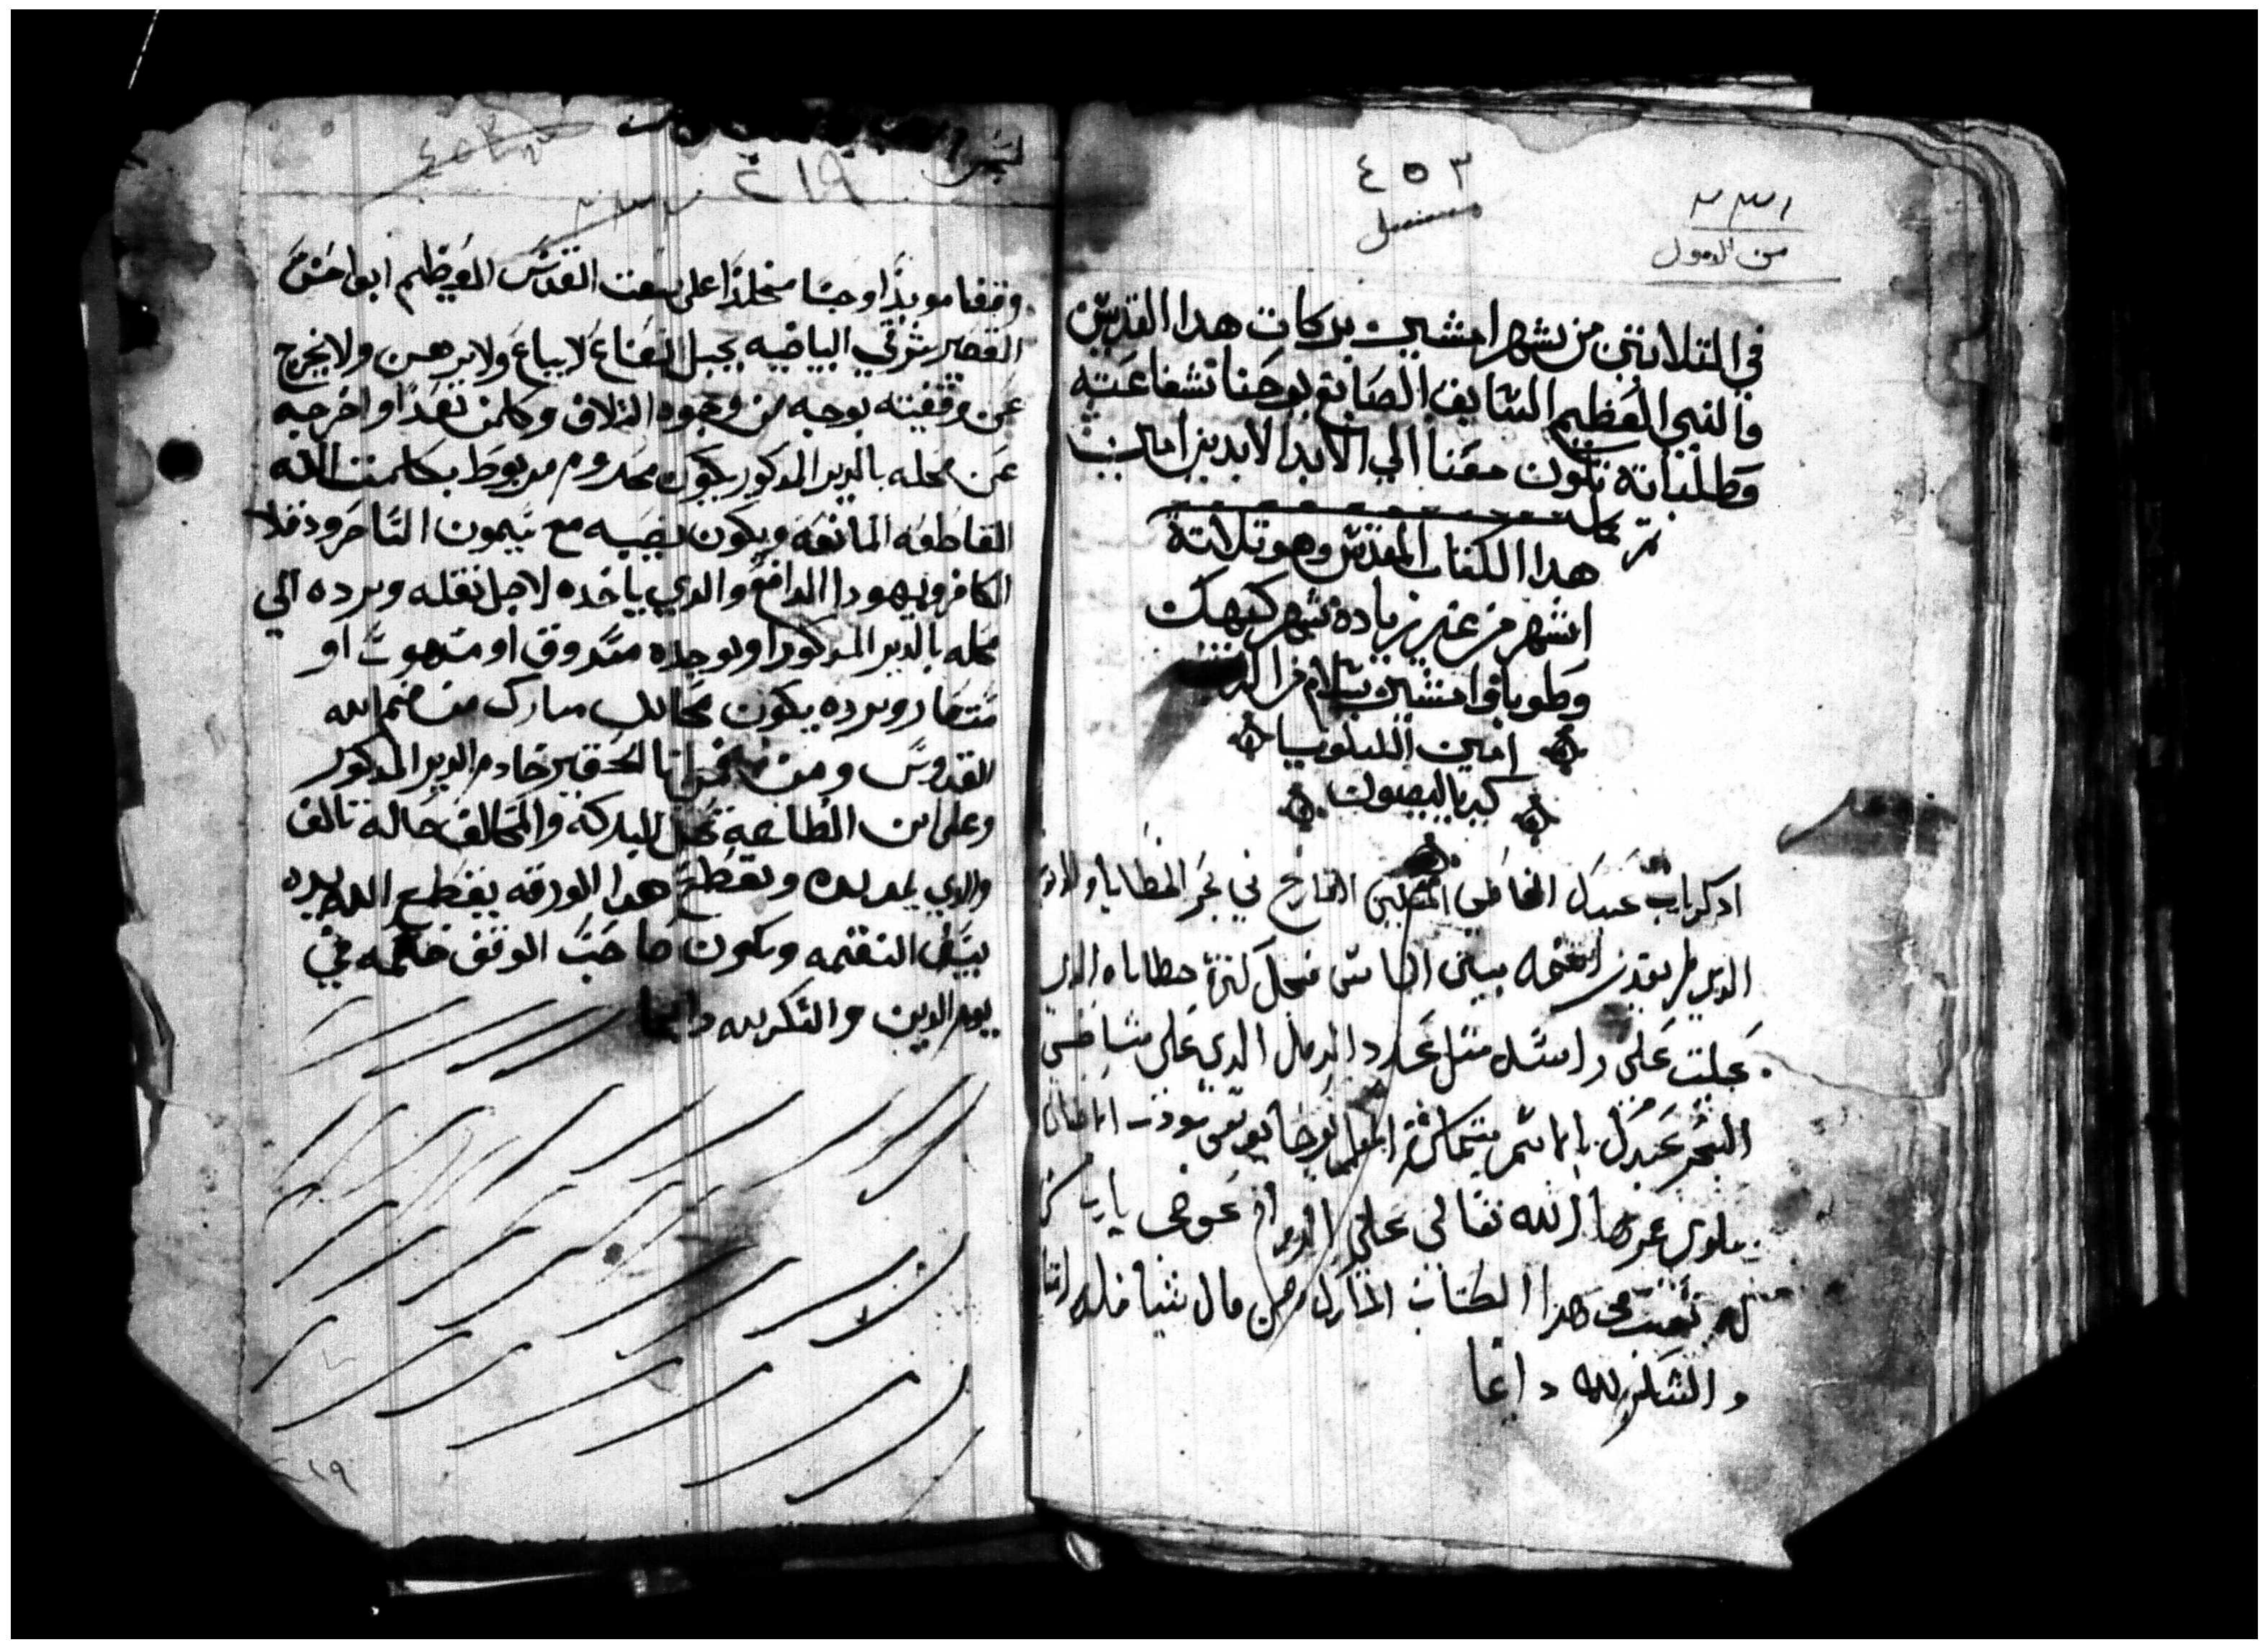 ٤٥٣
٢٣١
من الاصول
في التلاتين من شهر امشير بركات هدا القديس
والنبي العظيم السابق الصابغ يوحنا تشفاعته
وطلباته تكون معنا الي الابد الابدين امين
تم وكمل
هدا الكتاب المقدس وهو تلاتة
اشهر من غير زيادة شهر كيهك
وطوبه وامشير بسلام من الرب
امين الليلويا
كيرياليصون
ادكر يارب عبدك الخاطي المسكين الغارق في بحر الخطايا
الدي لم يقدر اسمه بين الناس من اجل كترة خطاياه الدي
علت علي راسه متل عدد الرمل الدي علي شاطي
البحر عبدك بالاسم شماس
غبريال الله تعالي علي الدوام عوض يارب من
له تعب في هدا الكتاب المبارك ومن قال شيا فله
والشكر لله دايما
٢١٩
وقفا موبدا وحبسا مخلدا علي بيعت القديس العظيم ابو احنس
القصير شرقي البياضيه بجبل البقاع لا يباع ولا يرهن ولا يخرج
عن وقفيته بوجه من وجوه التلاف وكلمن تعدا واخرجه
عن محله بالدير المدكور يكون محروم مربوط بكلمت الله
القاطعه المانعه ويكون نصيبه مع سيمون الساحر ودقلا
الكافر ويهودا الدافع والدي ياخده لاجل نقله ويرده الي
محله بالدير المدكور او يوجده مسروق او منهوب او
مستعار ويرده يكون محالل مبارك من فم الله
القدوس ومن فمي انا الحقير خادم الدير المدكور
وعلي ابن الطاعه تحل البركه والمخالف حاله تالف
والدي يمد يده ويقطع هدا الورقه يقطع الله يده
بسيف النقمه ويكون صاحب الوقف خصمه في
يوم الدين والشكر لله دايما
٢١٩